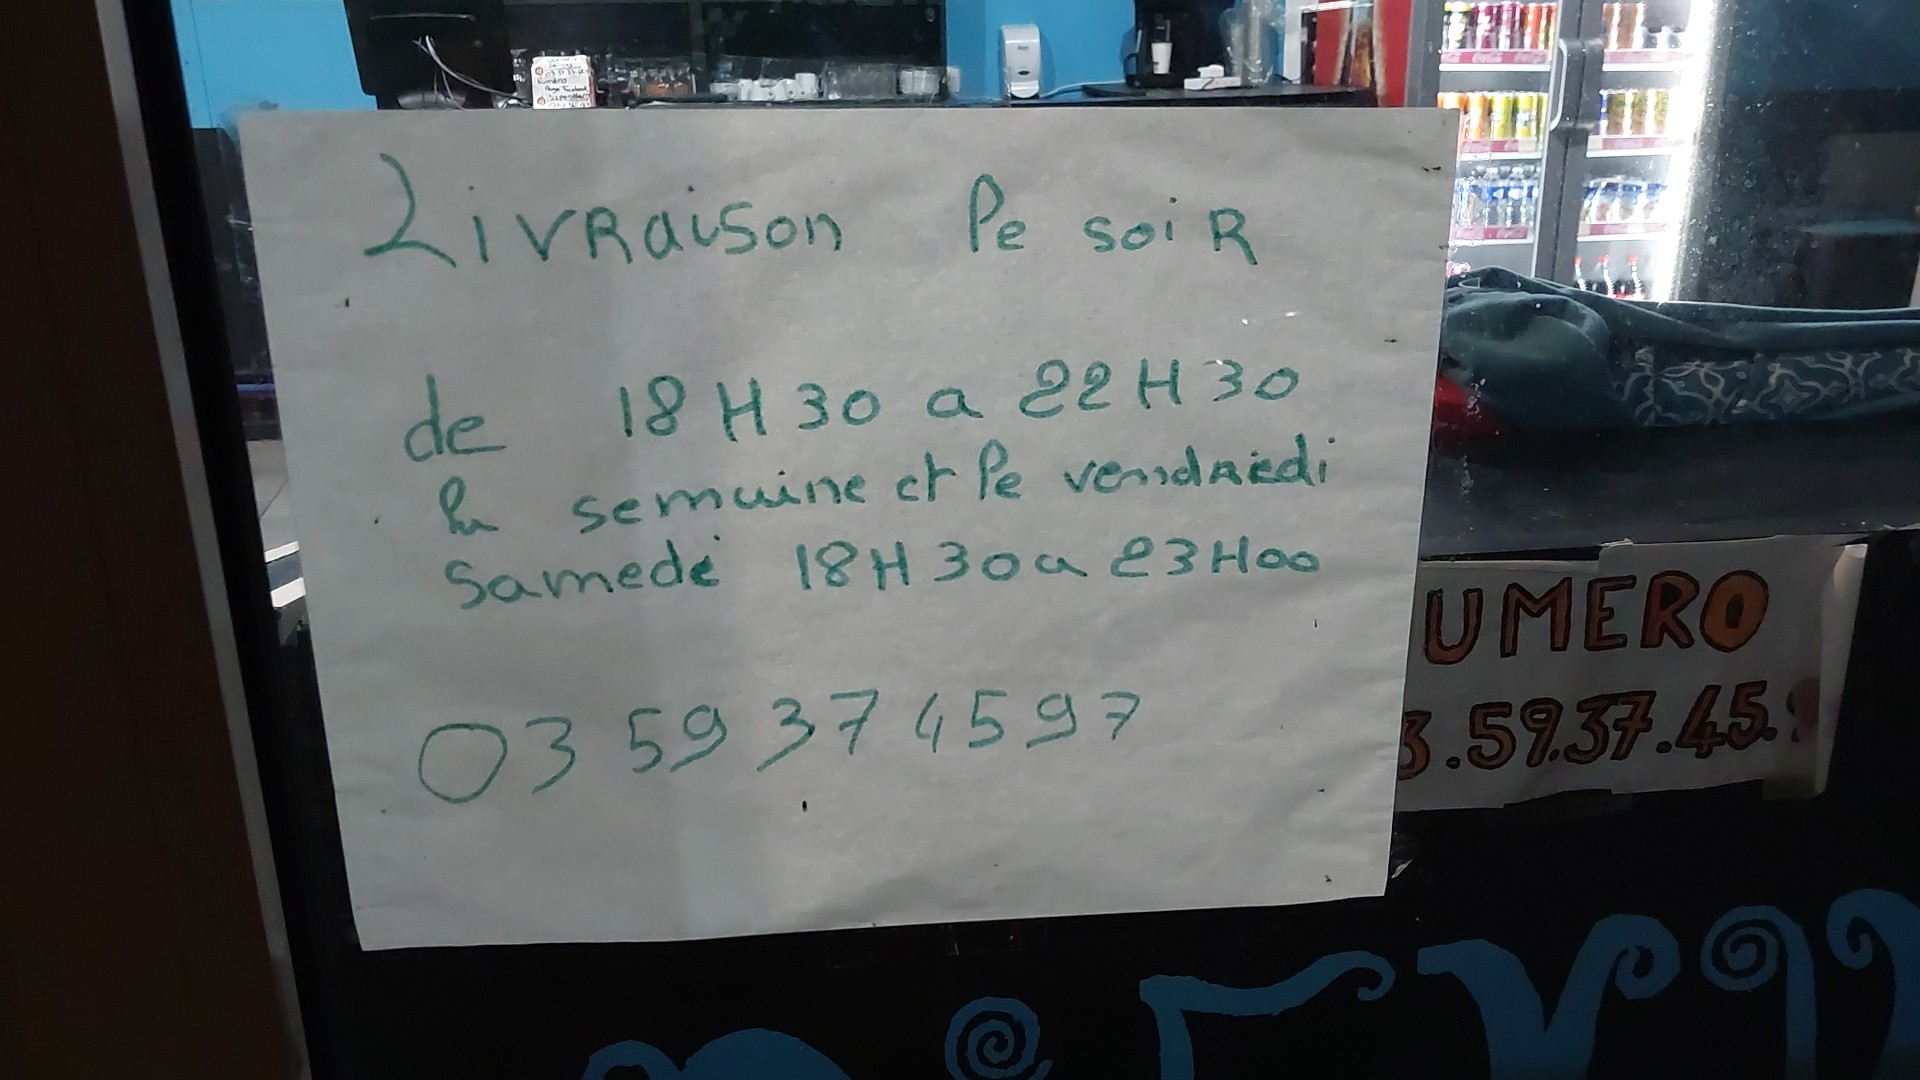 Livraison le soiR
de 18H30 a 22H30
la semaine et le vendredi
Samedi 18H30 a 23H00
03 59 37 45 97
UMERO
3.59.37.45.